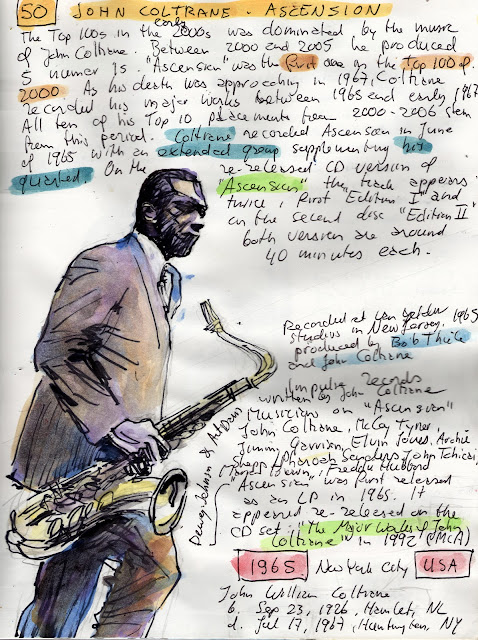 50 JOHN COLTRANE - ASCENSION
The Top 100s in the early 2000s was dominated by the music
of John Coltrane. Between 2000 and 2005 he produced
5 numer 1s. "Ascension" was the first one in the Top 100 of
2000. As his death was approching in 1967, Coltrane
recorded his major works between 1965 and early 1967.
All ten of his Top 10 placements from 2000-2006 stem
from this period. Coltrane recorded Ascension in June
of 1965 with an extended group supplementing his
quartet. On the re-released CD version of
"Ascension" the track appears
twice, first "Edition I" and
on the second disc "Edition II",
both version are around
40 minutes each.
Recorded at Van Gelder
studios in New Jersey, 1965
produced by Bob Thiele
and John Coltrane
Impulse Records
written by John Coltrane
Musicians on "Ascension"
John Coltrane, McCoy Tyner
Jimmy Garrison, Elvin Jones, Archie
Shepp, Pharoah Sanders, John Tchicai,
Marion Brown, Freddie Hubbard
Dewey Johnson & Art Davis
"Ascension" was first released
as an LP in 1965. It
appeared re-released on the
CD set: "The Major Works of John
Coltrane" in 1992 (MCA)
1965 New York City USA
John William Coltrane
b. Sep 23, 1926, Hamlet, NC
d. Jul 17, 1967, Huntington, NY